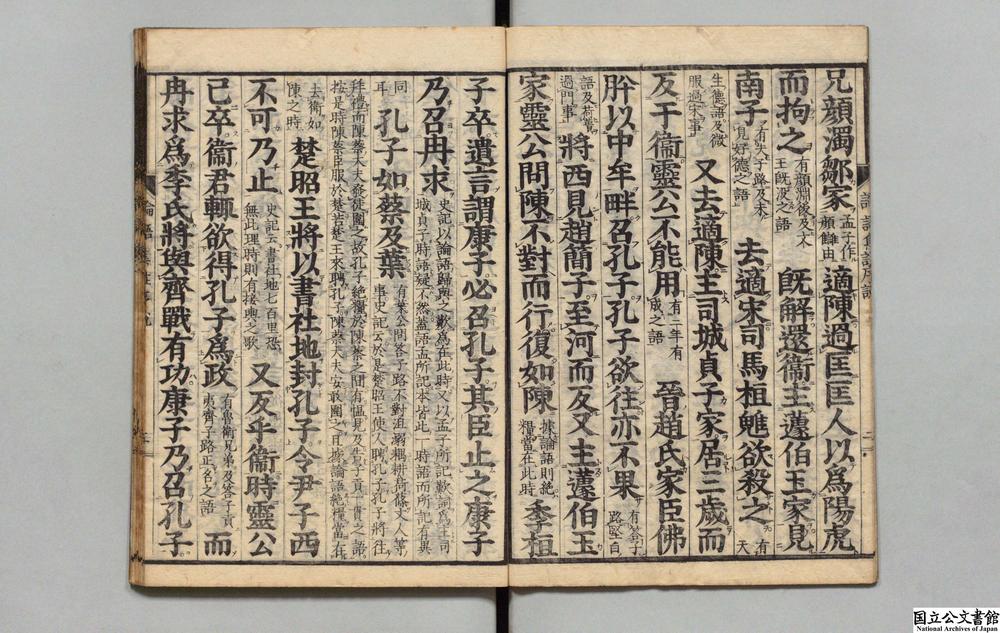 兄顔濁鄒家孟子作顔讐由適陳過匡匡人以爲陽虎
而拘之有顔淵後及文王既沒之語既解還衞主蘧伯玉家見
南子有矢子路及未見好德之語去適宋司馬桓魋欲殺之有天
生德語及微服過宋事又去適陳主司城貞子家居三歲而
反于衞靈公不能用有三年有成之語晉趙氏家臣佛
肸以中牟畔召孔子孔子欲往亦不果有答子路堅白
語及荷蕢過門事將西見趙簡子至河而反又主蘧伯玉
家靈公問陳不對而行復如陳據論語則絕糧當在此時季桓
子卒遺言謂康子必召孔子其臣止之康子
乃召冉求史記以論語歸與之歎爲在此時又以孟子所記歎詞爲主司城貞子時語疑不然蓋語孟所記本皆此一時語而所記有異
同耳孔子如蔡及葉有葉公問答子路不對沮溺耦耕荷蓧丈人等事史記云於是楚昭王使人聘孔子孔子將往
拜禮而陳蔡大夫發徒圍之故孔子絕糧於陳蔡之間有慍見及告子貢一貫之語按是時陳蔡臣服於楚若楚王來聘孔子陳蔡大夫安敢圍之且據論語絕糧當在
去衞如陳之時楚昭王將以書社地封孔子令尹子西
不可乃止史記云書社地七百里恐無此理時則有接輿之歌又反乎衞時靈公
已卒衞君輒欲得孔子爲政有魯衞兄弟及答子貢夷齊子路正名之語而
冉求爲季氏將與齊戰有功康子乃召孔子
国立公文書館
National Archives of Japan